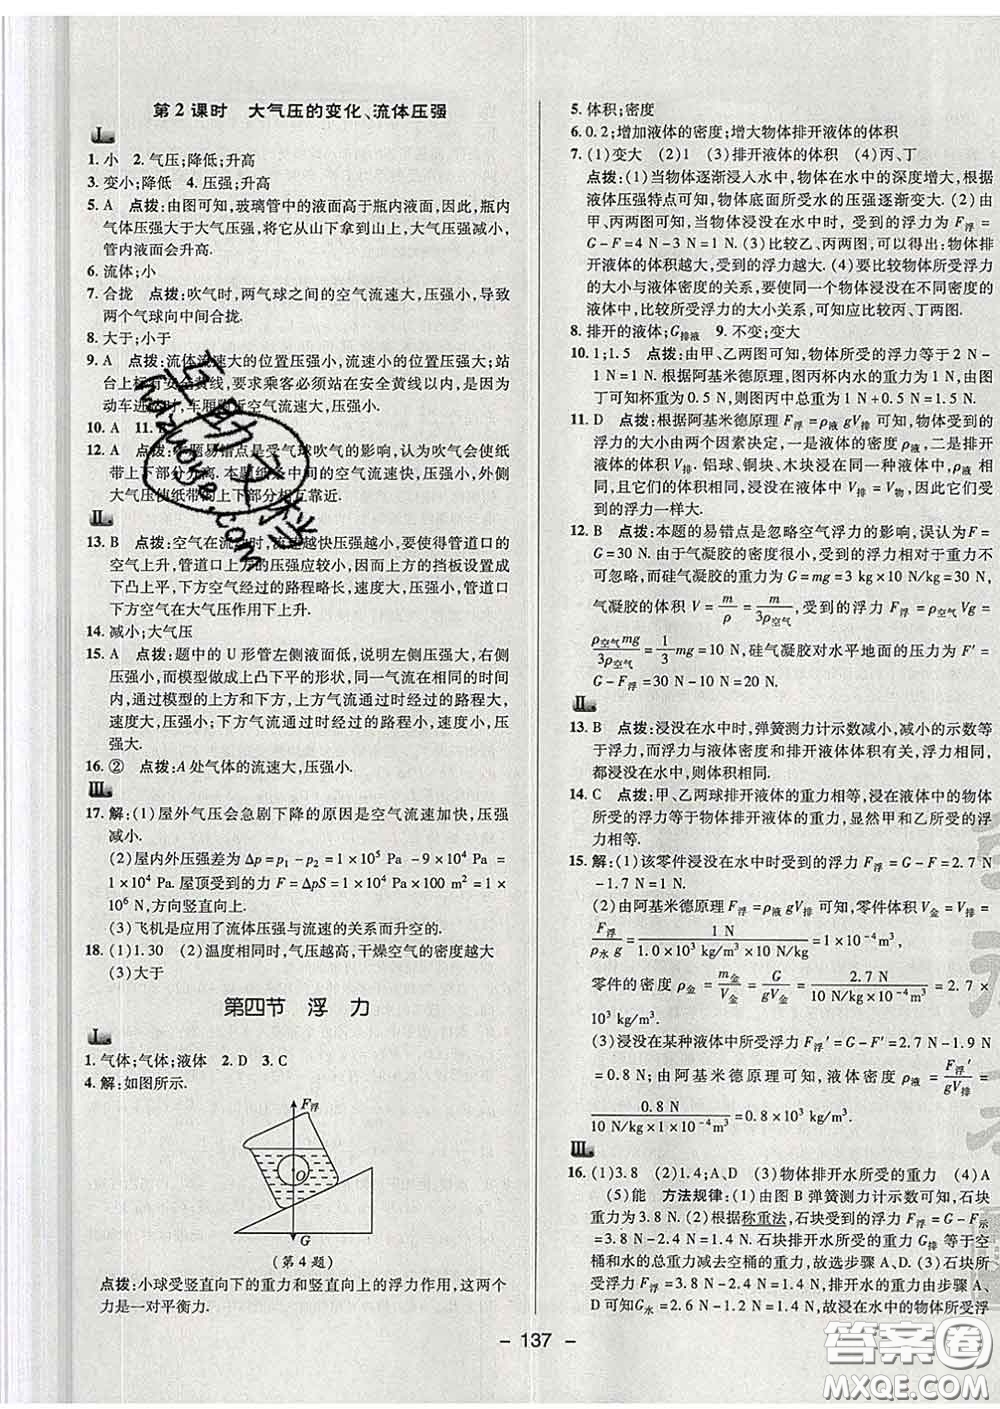 第2课时　大气压的变化、流体压强
Ⅰ.
1. 小　2. 气压;降低;升高
3. 变小;降低　4. 压强;升高
5. A　点拨:由图可知,玻璃管中的液面高于瓶内液面,因此,瓶内
气体压强大于大气压强,将它从山下拿到山上,大气压强减小,
管内液面会升高.
6. 流体;小
7. 合拢　点拨:吹气时,两气球之间的空气流速大,压强小,导致
两个气球向中间合拢.
8. 大于;小于
9. A　点拨:流体流速大的位置压强小,流速小的位置压强大;站
台上标有安全黄线,要求乘客必须站在安全黄线以内,是因为
动车进站时,车厢附近空气流速大,压强小.
10. A　11.
12. A　点拨:本题易错点是受气球吹气的影响,认为吹气会使纸
带上下部分分离.本题纸条中间的空气流速快,压强小,外侧
大气压使纸带的上下部分相互靠近.
Ⅱ.
13. B　点拨:空气在流动时,流速越快压强越小,要使得管道口的
空气上升,管道口上方的压强应较小,因而上方的挡板设置成
下凸上平,上方空气经过的路程略长,速度大,压强小,管道口
下方空气在大气压作用下上升.
14. 减小;大气压
15. A　点拨:题中的 U 形管左侧液面低,说明左侧压强大,右侧
压强小,而模型做成上凸下平的形状,同一气流通过时经过的
路程上方和下方不同,上方气流通过时经过的路程大,
速度大,压强小,下方气流通过时经过的路程小,速度小,压
强大.
16. ②　点拨:A 处气体的流速大,压强小.
Ⅲ.
17. 解:(1)屋外气压会急剧下降的原因是空气流速加快,压强
减小.
(2)屋内外压强差为 Δp=p₁-p₂=1×10⁵ Pa-9×10⁴ Pa=
1×10⁴Pa.屋顶受到的力 F=ΔpS=1×10⁴ Pa×100 m²=1×
10⁶ N,方向竖直向上.
(3)飞机是应用了流体压强与流速的关系而升空的.
18. (1)1.30　(2)温度相同时,气压越高,干燥空气的密度越大
(3)大于
第四节　浮　力
Ⅰ.
1. 气体;气体;液体　2. D　3. C
4. 解:如图所示.
F浮
O
G
(第4题)
点拨:小球受竖直向下的重力和竖直向上的浮力作用,这两个
力是一对平衡力.
5. 体积;密度
6. 0.2;增加液体的密度;增大物体排开液体的体积
7. (1)变大　(2)1　(3)排开液体的体积　(4)丙、丁
点拨:(1)当物体逐渐浸入水中,物体在水中的深度增大,根
据液体压强特点可知,物体底面所受水的压强逐渐变大.(2)由
甲、丙两图可知,当物体浸没在水中时,受到的浮力为 F浮
=G-F=4 N-3 N=1 N.(3)比较乙、丙两图,可以得出:物体排
开液体的体积越大,受到的浮力越大.(4)要比较物体所受浮力
的大小与液体密度的关系,要使同一个物体浸没在密度不同的
液体中,比较所受浮力的大小关系,可知应比较丙、丁两图.
8. 排开的液体;G排液　9. 不变;变大
10. 1;1.5　点拨:由甲、乙两图可知,物体所受的浮力等于 2 N-
1 N=1 N.根据阿基米德原理,图丙杯内水的重力为 1 N,由图
丁可知杯重为 0.5 N,则图丙中总重为 1 N+0.5 N=1.5 N.
11. D　点拨:根据阿基米德原理 F浮=ρ液 gV排 可知,物体受到的
浮力的大小由两个因素决定,一是液体的密度 ρ液,二是排开
液体的体积 V排.铝球、铜块、木块浸没在同一液体中,ρ液相
同,且它们的体积相同,浸没在液体中 V排=V物,因此它们受
到的浮力一样大.
12. B　点拨:本题的易错点是忽略空气浮力的影响,误认为 F=
G=30 N.由于气凝胶的密度很小,受到的浮力相对于重力不
可忽略,而硅气凝胶的重力为 G=mg=3 kg×10 N/kg=30 N,
气凝胶的体积 V=m/ρ=m/3ρ空气,受到的浮力 F浮=ρ空气Vg=
ρ空气mg/3ρ空气=1/3mg=10 N,硅气凝胶对水平地面的压力 F′=
G-F浮=30 N-10 N=20 N.
Ⅱ.
13. B　点拨:浸没在水中时,弹簧测力计示数减小,减小的示数等
于浮力,而浮力与液体密度和排开液体体积有关,浮力相同,
都浸没在水中,则体积相同.
14. C　点拨:甲、乙两球排开液体的重力相等,浸在液体中的物体
所受的浮力等于物体排开液体的重力,显然甲和乙所受的浮
力相等.
15. 解:(1)该零件浸没在水中时受到的浮力 F浮=G-F=2.7 N
-1.7 N=1 N.
(2)由阿基米德原理 F浮=ρ液 gV排 可知,零件体积 V金=V排=
F浮/ρ水 g=1 N/1.0×10³ kg/m³×10 N/kg=1×10⁻⁴m³
零件的密度 ρ金=m金/V金=G/gV金=2.7 N/10 N/kg×10⁻⁴m³=2.7×
10³ kg/m³.
(3)浸没在某种液体中所受浮力 F浮′=G-F′=2.7 N-1.9 N
=0.8 N;由阿基米德原理可知,液体密度 ρ液=F浮′/gV排=
0.8 N/10 N/kg×1×10⁻⁴m³=0.8×10³ kg/m³.
Ⅲ.
16. (1)3.8　(2)1.4;A、D　(3)物体排开水所受的重力　(4)A
(5)能　方法规律:(1)由图 B 弹簧测力计示数可知,石块
重力为3.8 N.(2)根据称重法,石块受到的浮力 F浮=G-F示
=3.8 N-2.4 N=1.4 N.石块排开水所受的重力 G排 等于空
桶和水的总重力减去空桶的重力,故选步骤 A、D.(3)石块所
受浮力 F浮=3.8 N-2.4 N=1.4 N,排开水的重力由步骤 A、
D 可知G水=2.6 N-1.2 N=1.4 N,故浸在水中的物体所受浮
- 137 -
互助文档
huzuoye.com
答案圈
MXQE.COM